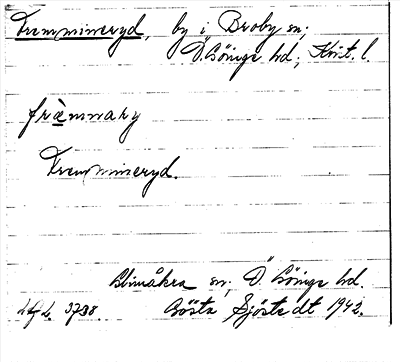 Tremmineryd, by i Broby sn;
Ö. Göinge hd; Krist. l.
frèmmary
Tremmineryd.
Glimåkra sn; Ö. Göinge hd.
3738. Gösta Sjöstedt 1942.